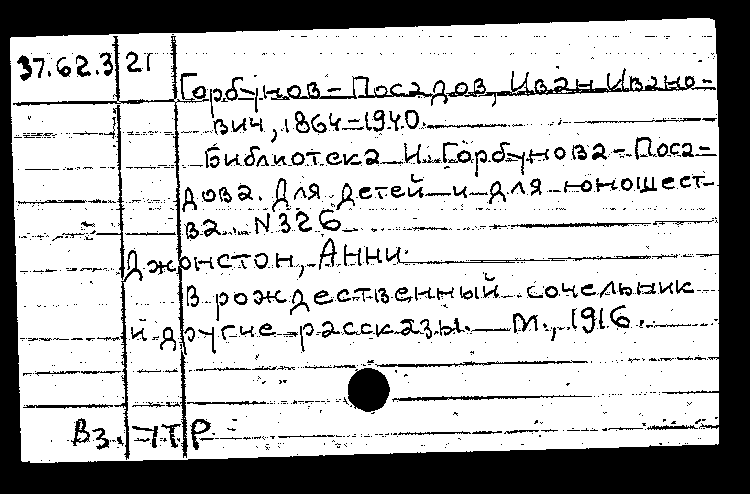 37.62.3 21
Горбунов-Посадов, Иван Ивано-
вич, 1864-1940.
Библиотека И. Горбунова-Поса-
дова. Для детей и для юношест-
ва. N326
Джонстон, Анни.
В рождественный сочельник
и другие рассказы. М., 1916.
Вз.